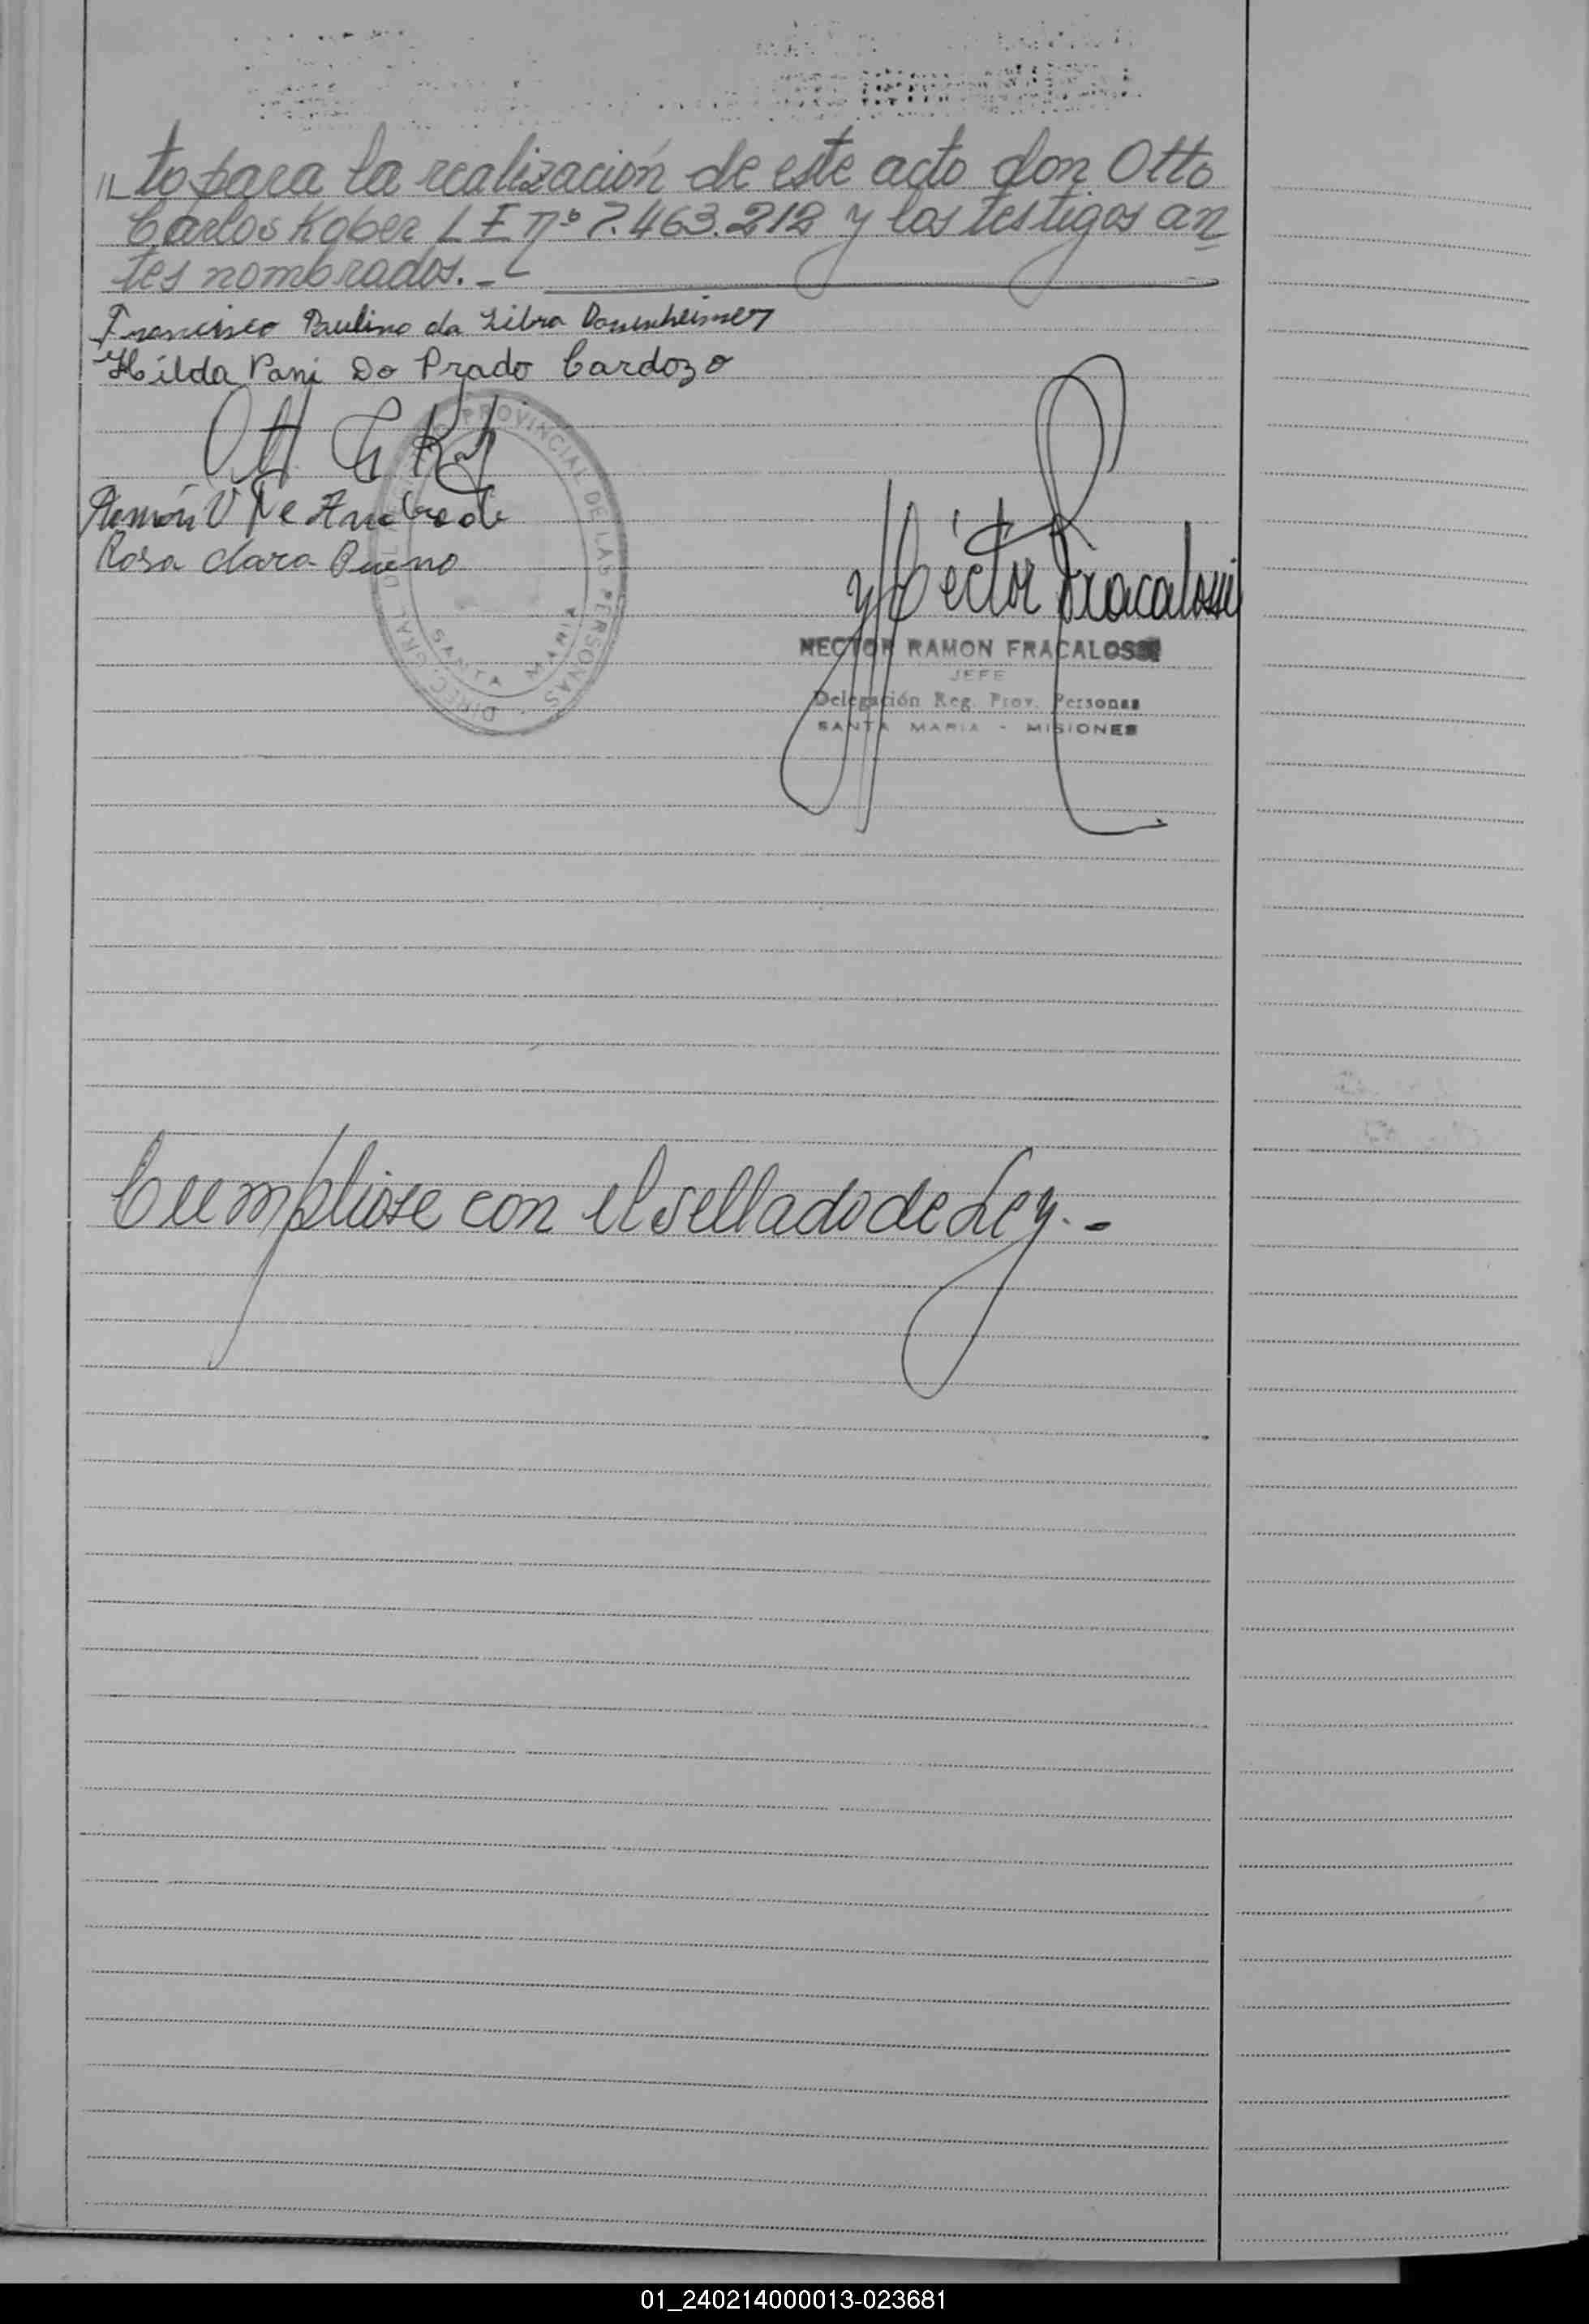 // to para la realización de este acto don Otto
Carlos Kober L E nº 7.463.212 y los testigos an
tes nombrados. -
Francisco Paulino da Silva
Hilda Pani Do Prado Cardozo
Ramón V De Andrade
Rosa clara Bueno
PROVINCIAL DE LAS PERSONAS
SANTA MARIA
Héctor Fracalossi
HECTOR RAMON FRACALOSSI
JEFE
Delegación Reg. Prov. Personas
SANTA MARIA - MISIONES
Cumpliose con el sellado de Ley. -
01_240214000013-023681